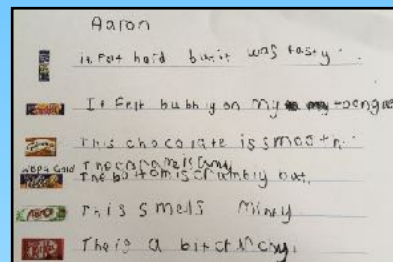 Aaron
it Felt hard but it was tasty.
It Felt bubbly on my my toenge
This chocolate is smooth.
The caramel is
The bottom is crumbly but
This smells Minty
The is a bit